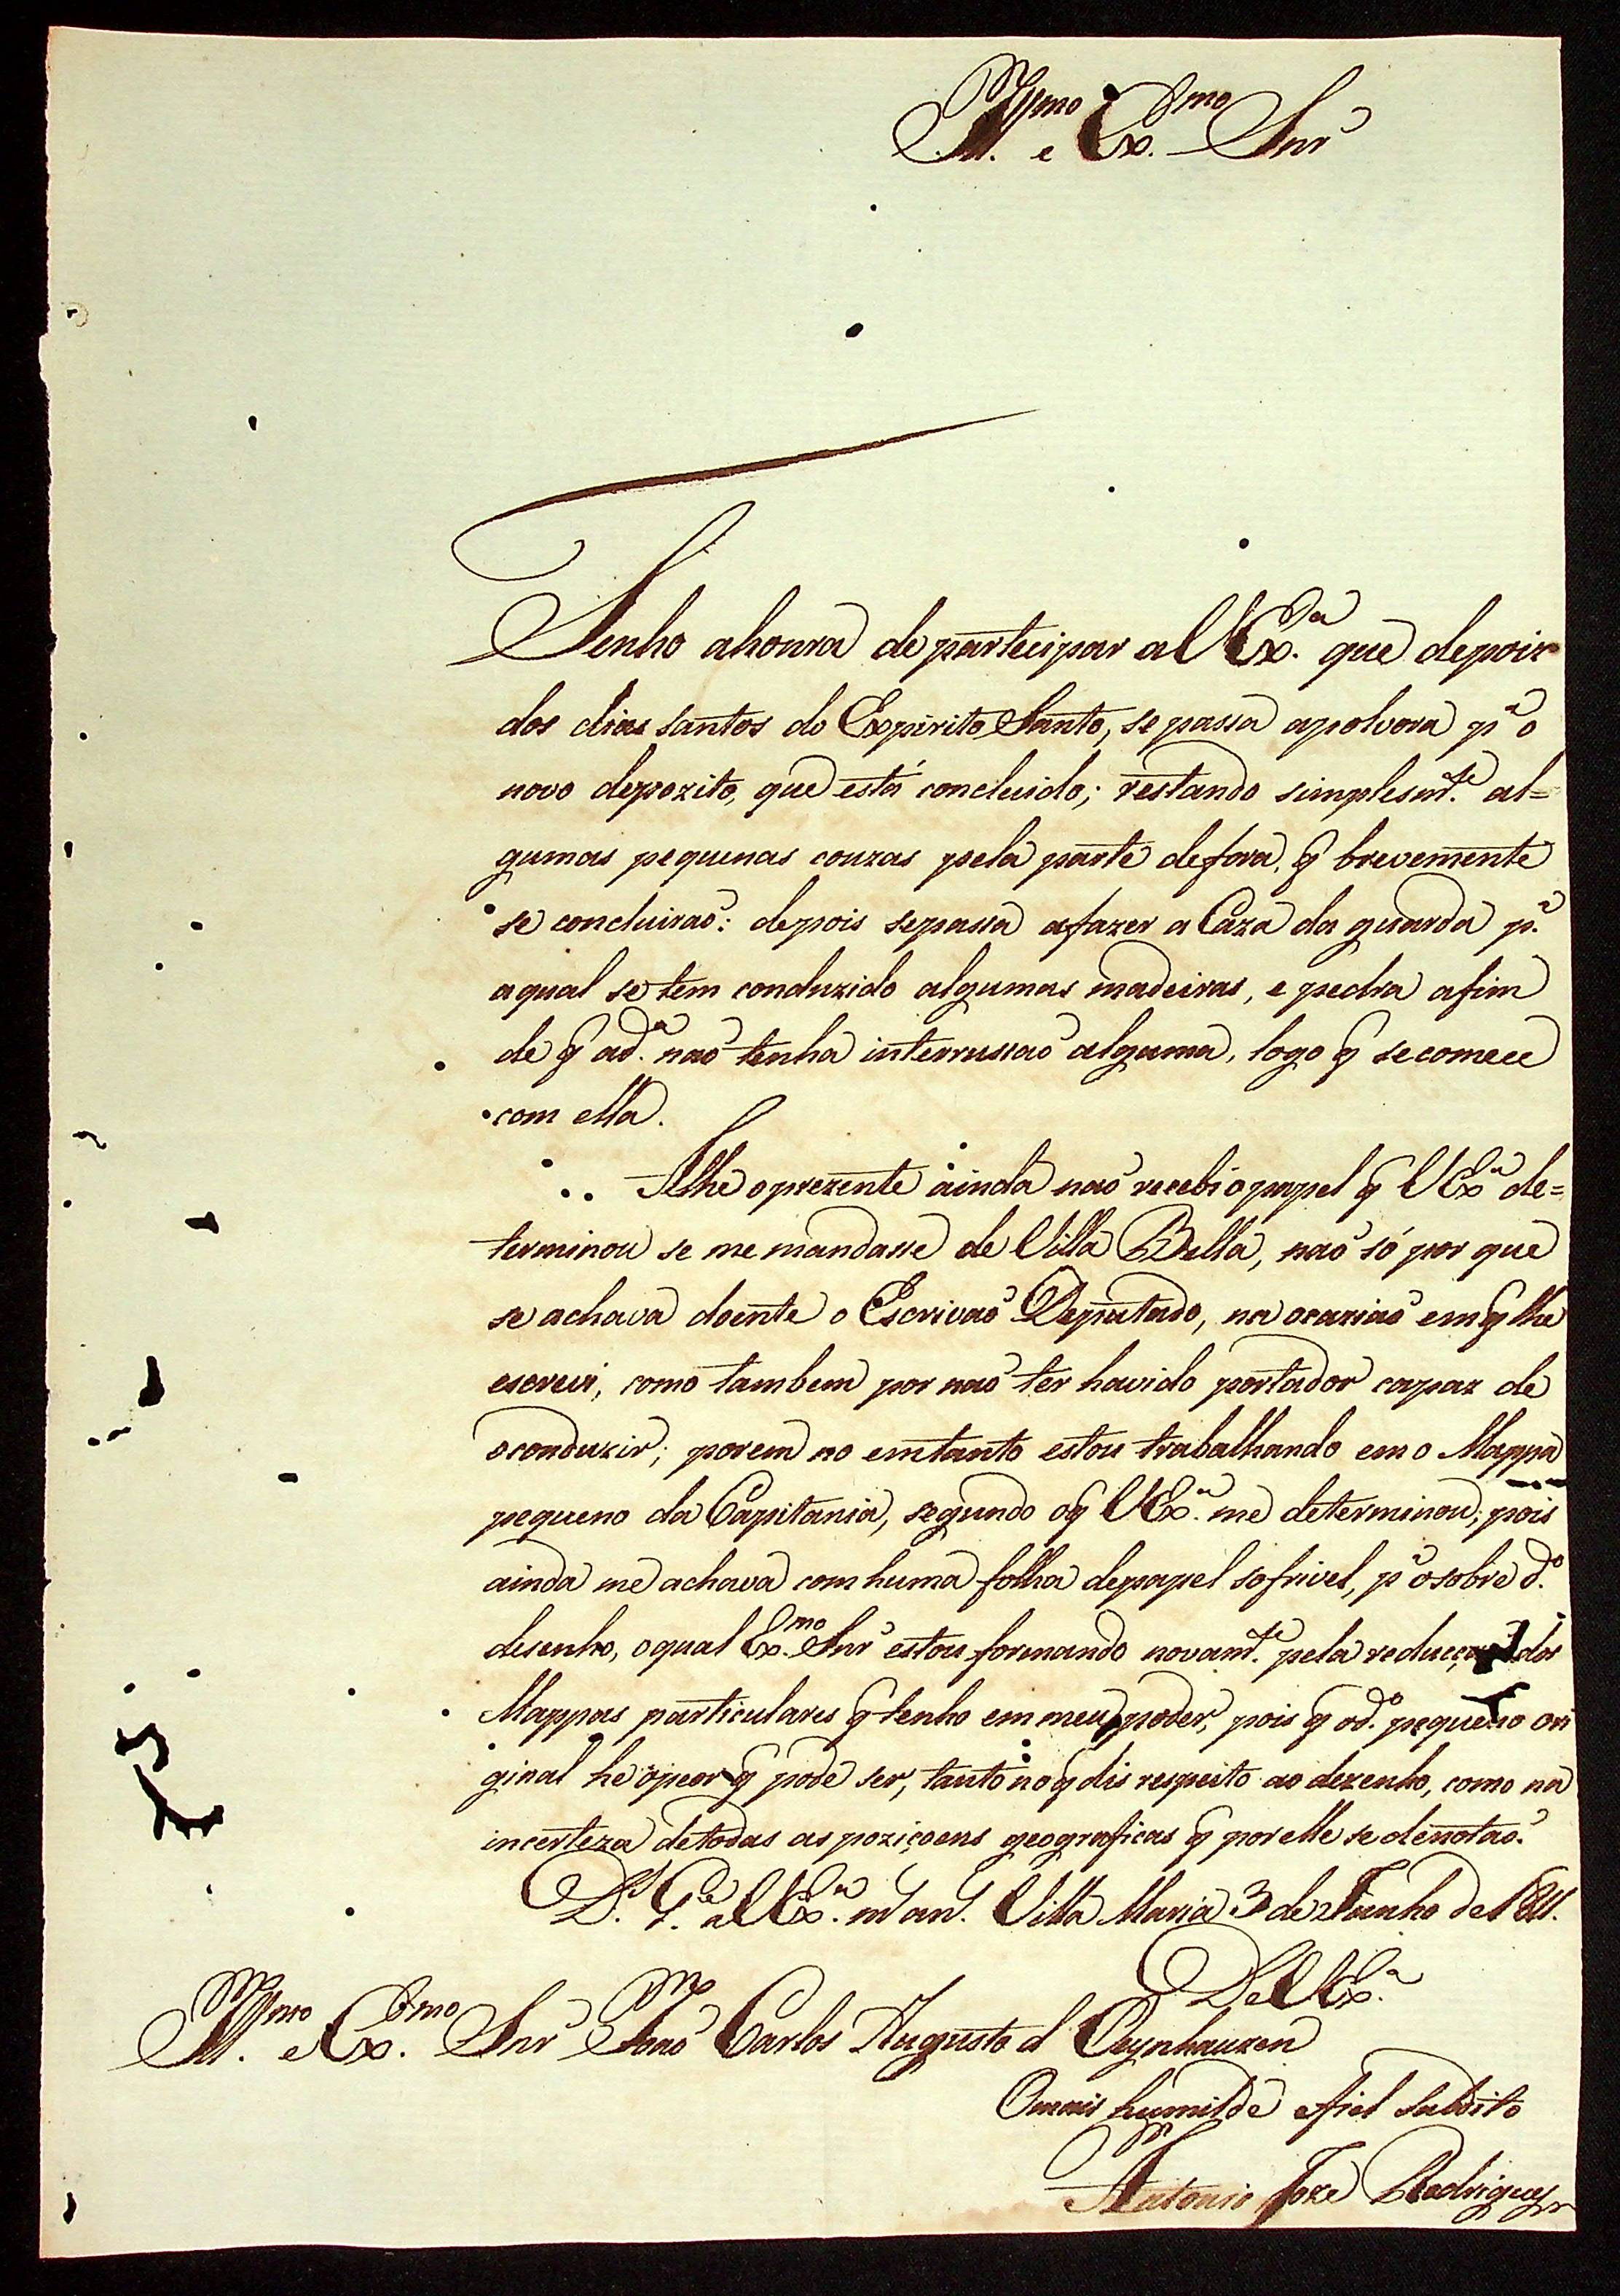 Ill.mo e Ex.mo Snr
Tenho ahonra departecipar a V Ex.a que depois
dos dias santos do Expirito Santo, se passa apolvora p.a o
novo depozito, que está concluido; restando simplesm.te al=
gumas pequenas couzas pela parte defora, q̃ brevemente
se concluiraõ: depois sepassa afazer a Caza da guarda p.a
aqual se tem conduzido algumas madeiras, e pedra afim
de q̃ ad.a naõ tenha interrussaõ alguma, logo q̃ secomece
com ella.
Athe oprezente ainda naõ recebi opapel q̃ V Ex.a de=
terminou se me mandasse de Villa Bella, naõ só por que
se achava doente o Escrivaõ Deputado, na ocaziaõ em q̃ lhe
escrevi, como tambem por naõ ter havido portador capaz de
oconduzir; porem no emtanto estou trabalhando em o Mappa
pequeno da Capitania, segundo oq̃ V Ex.a me determinou; pois
ainda me achava com huma folha depapel sofrivel, p.a osobre d.o
desenho, oqual Ex.mo Snr estou formando novam.te pela reducçaõ dos
Mappas particulares q̃ tenho em meu poder, pois q̃ od.o pequeno ori
ginal he opeor q̃ pode ser, tanto no q̃ dis respeito ao dezenho, como na
incerteza detodas as poziçoens geograficas q̃ por elle se denotaõ.
D.s G.e a V Ex.a m.s an.s Villa Maria 3 de Junho de 1811.
De V Ex.a
Ill.mo e Ex.mo Snr Joaõ Carlos Augusto d Oeynhauzen
Omais humilde efiel Subdito
Antonio Joze Rodrigues